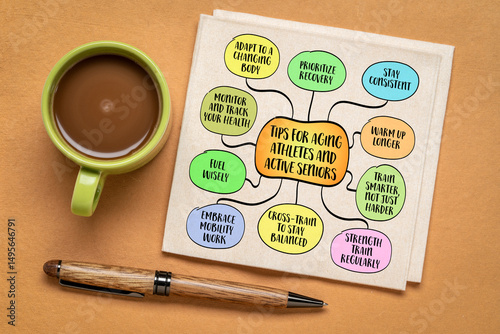 ADAPT TO A
CHANGING
BODY
PRIORITIZE
RECOVERY
STAY
CONSISTENT
MONITOR
AND TRACK
YOUR HEALTH
TIPS FOR AGING
ATHLETES AND
ACTIVE SENIORS
WARM UP
LONGER
FUEL
WISELY
TRAIN
SMARTER,
NOT JUST
HARDER
EMBRACE
MOBILITY
WORK
CROSS-TRAIN
TO STAY
BALANCED
STRENGTH
TRAIN
REGULARLY
#1495646791